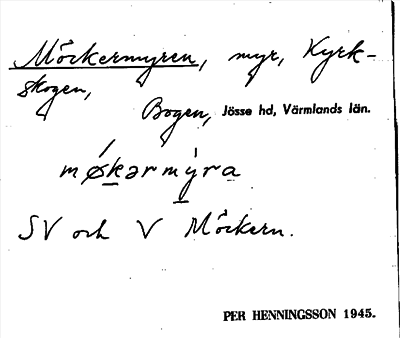 Möckermyren, myr, Kyrk-
skogen,
Bogen, Jösse hd, Värmlands län.
møkərmyra
SV och V Möckern.
PER HENNINGSSON 1945.